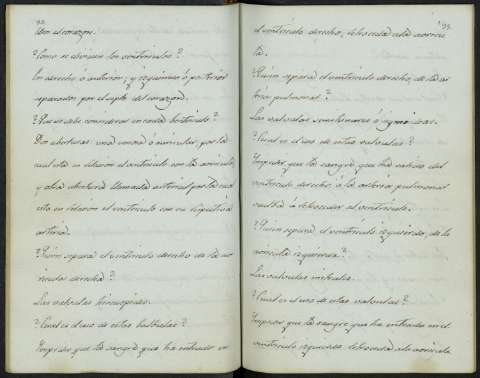 del corazon.
? Como se dividen los ventriculos?
En derecho ó anterior, y izquierdo ó posterior
separados por el septo del corazon.
? Que se debe considerar en cada ventriculo?
Dos aberturas: una venosa ó auricular por la
cual esta en relacion el ventriculo con la auricula,
y otra abertura llamada arterial por la cual
esta en relacion el ventriculo con su respectiva
arteria.
? Quien separa el ventriculo derecho de la au-
ricula derecha?
Las valvulas tricuspides.
? Cual es el uso de estas valvulas?
Impedir que la sangre que ha entrado en
el ventriculo derecho, retroceda a la auricu-
la.
? Quien separa el ventriculo derecho, de la ar-
teria pulmonar?
Las valvulas semilunares ó sigmoideas.
? Cual es el uso de estas valvulas?
Impedir que la sangre que ha salido del
ventriculo derecho á la arteria pulmonar
vuelva á retroceder al ventriculo.
? Quien separa el ventriculo izquierdo, de la
auricula izquierda?
Las valvulas mitrales.
? Cual es el uso de estas valvulas?
Impedir que la sangre que ha entrado en el
ventriculo izquierdo retroceda a la auricula